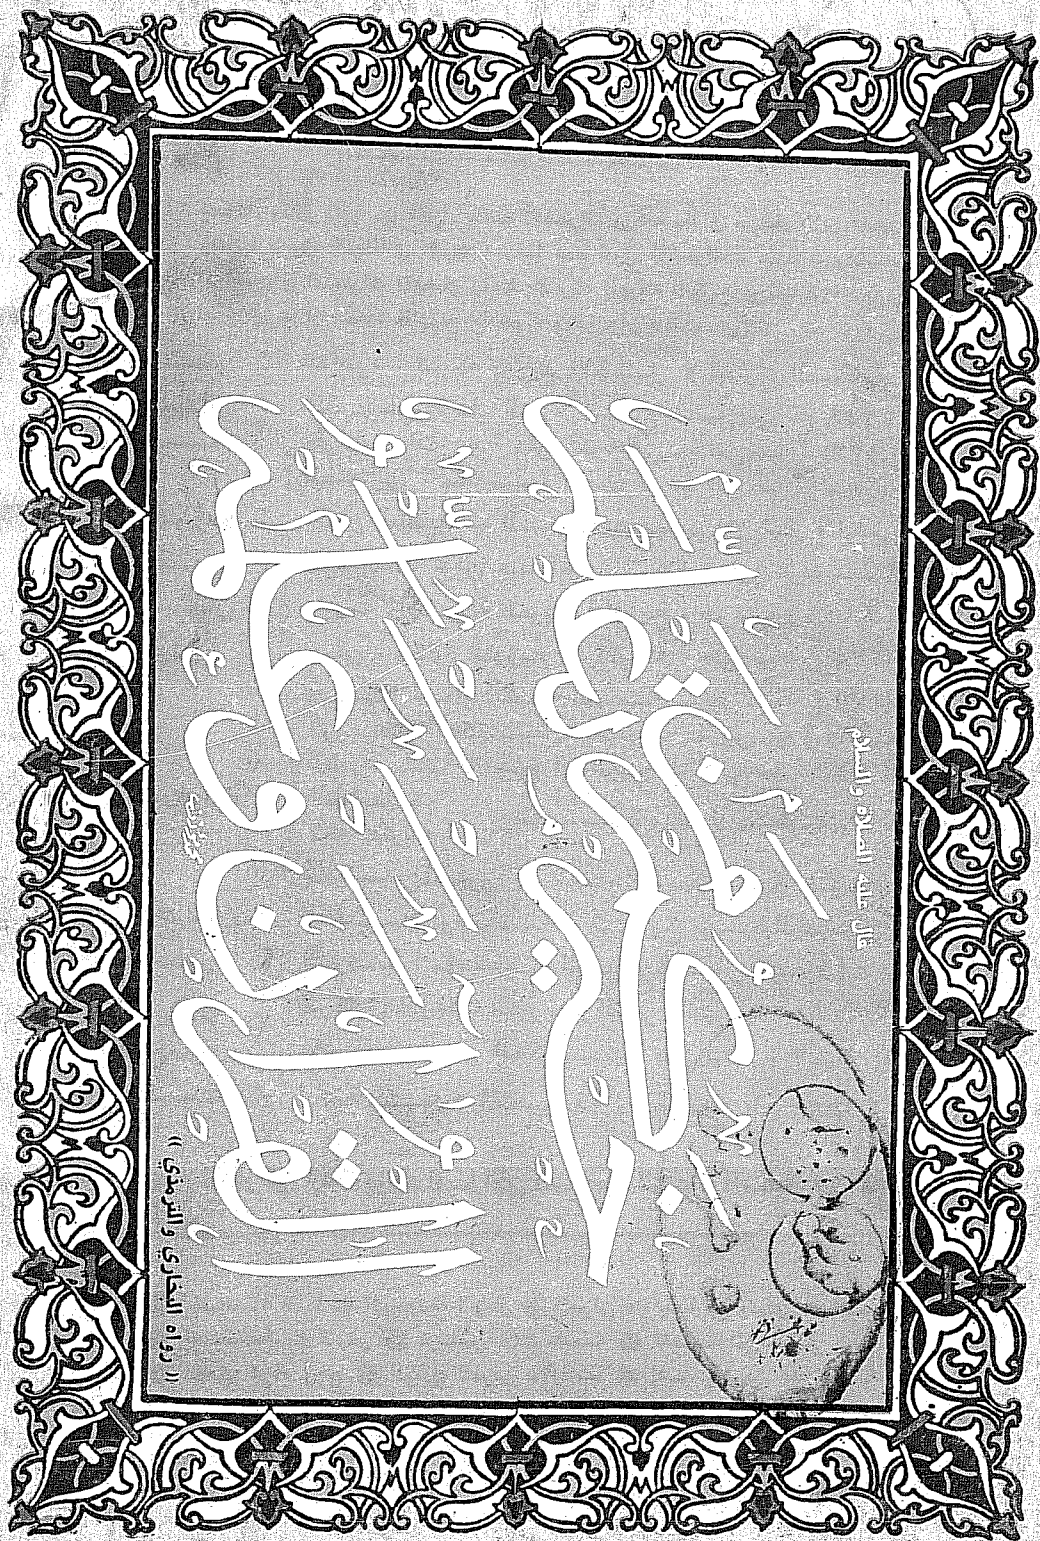 قال عليه الصلاة والسلام
خَيْرُكُمْ مَنْ تَعَلَّمَ
الْقُرْآنَ وَعَلَّمَهُ
(( رواه البخاري والترمذي ))